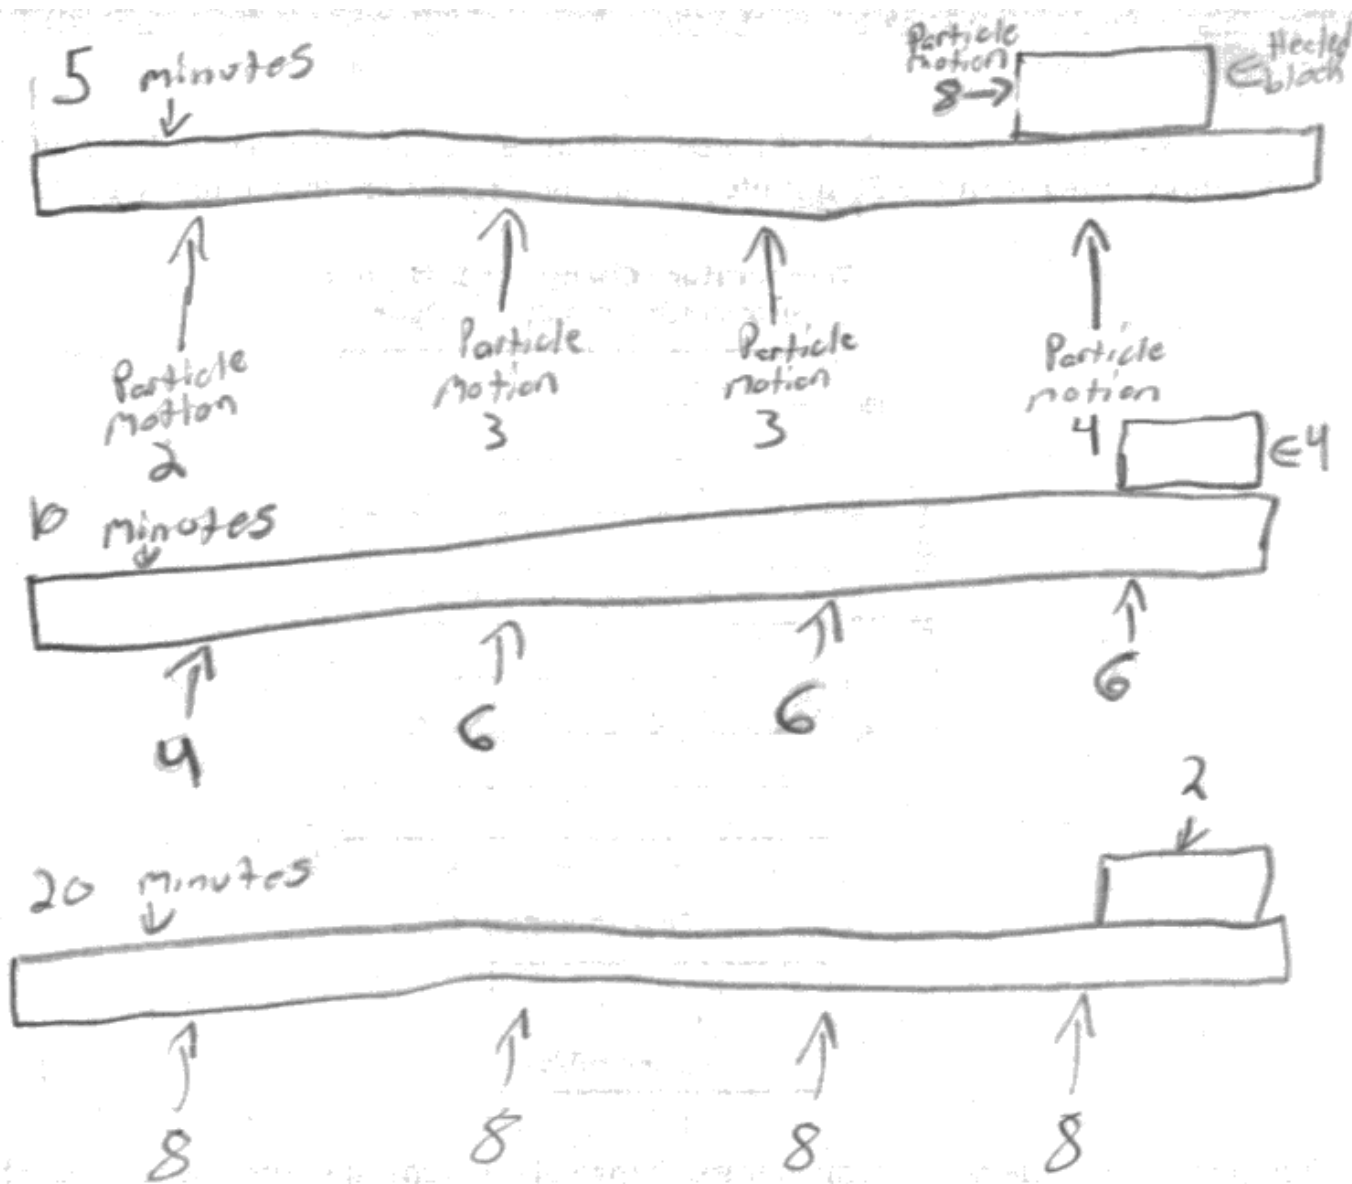 5 minutes
Particle
motion
8
Heated
block
Particle
motion
2
Particle
motion
3
Particle
motion
3
Particle
motion
4
10 minutes
4
4
6
6
6
20 minutes
2
8
8
8
8